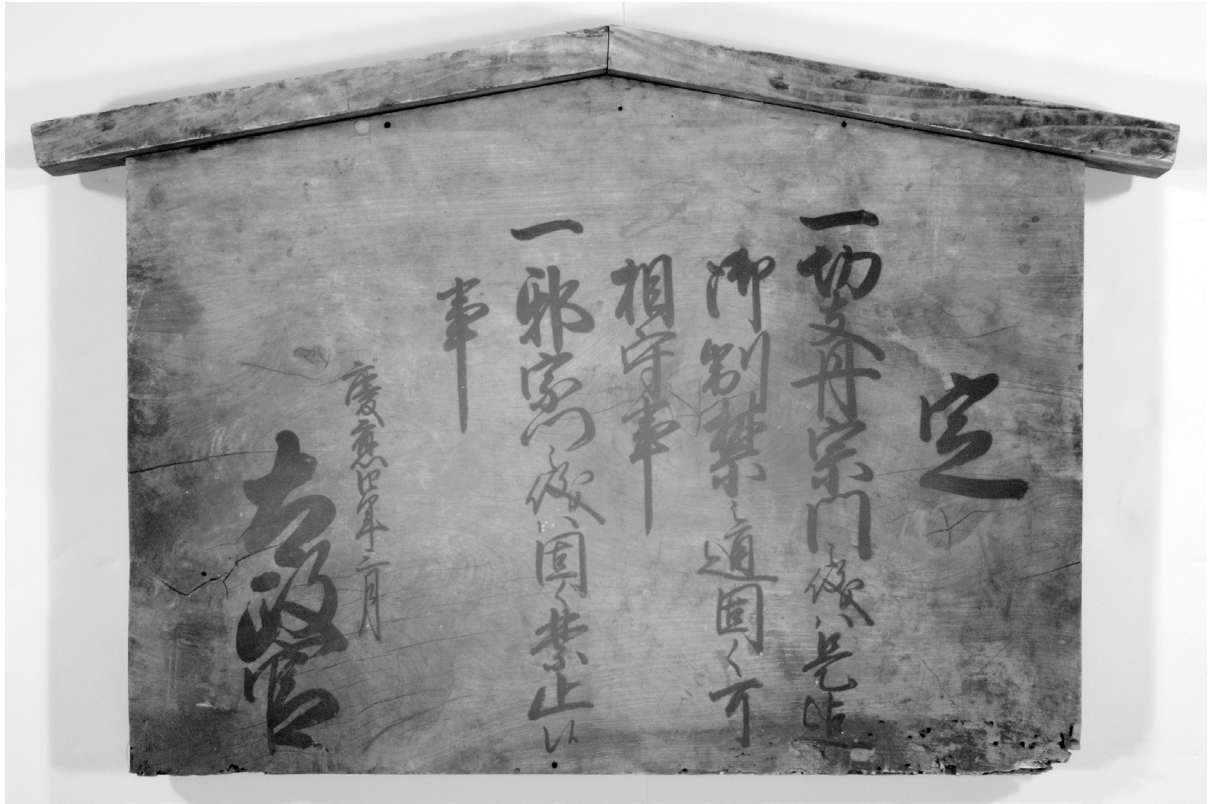 定
一切支丹宗門之儀ハ是迄
御制禁之通固く可
相守事
一邪宗門之儀ハ固く禁止候
事
慶應四年三月
太政官